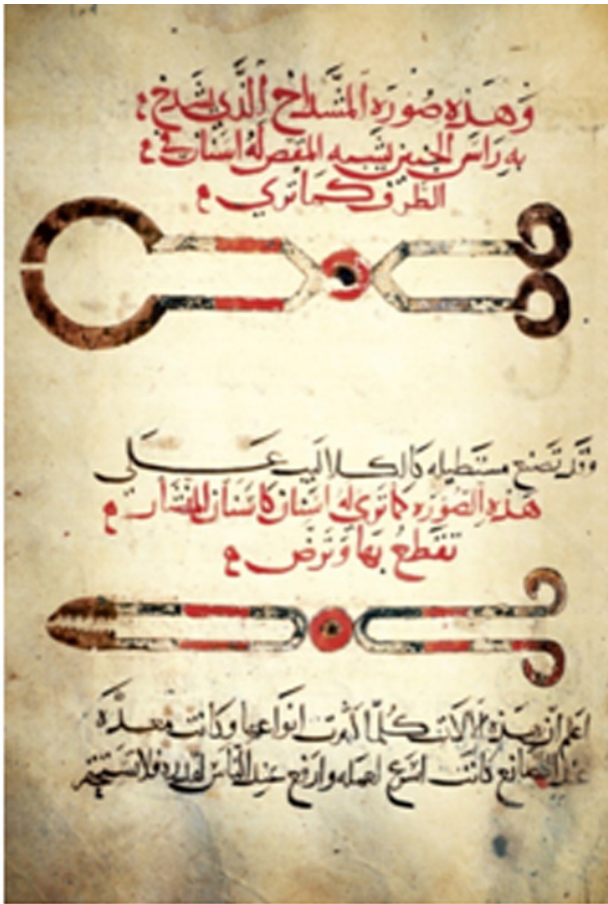 وهذه صورة المشداخ الذي يشدخ
به راس الجنين يشبه المقص له اسنان في
الطرف كما ترى
وقد تصنع مستطيلة كالكلاليب على
هذه الصورة كما ترى له اسنان كاسنان المنشار
تقطع بها وترض
اعلم ان هذه الالات كلما كثرت انواعها وكانت معدة
عند الصانع كانت اسرع لعمله وارفع عند الناس لقدره فلا تستحقر